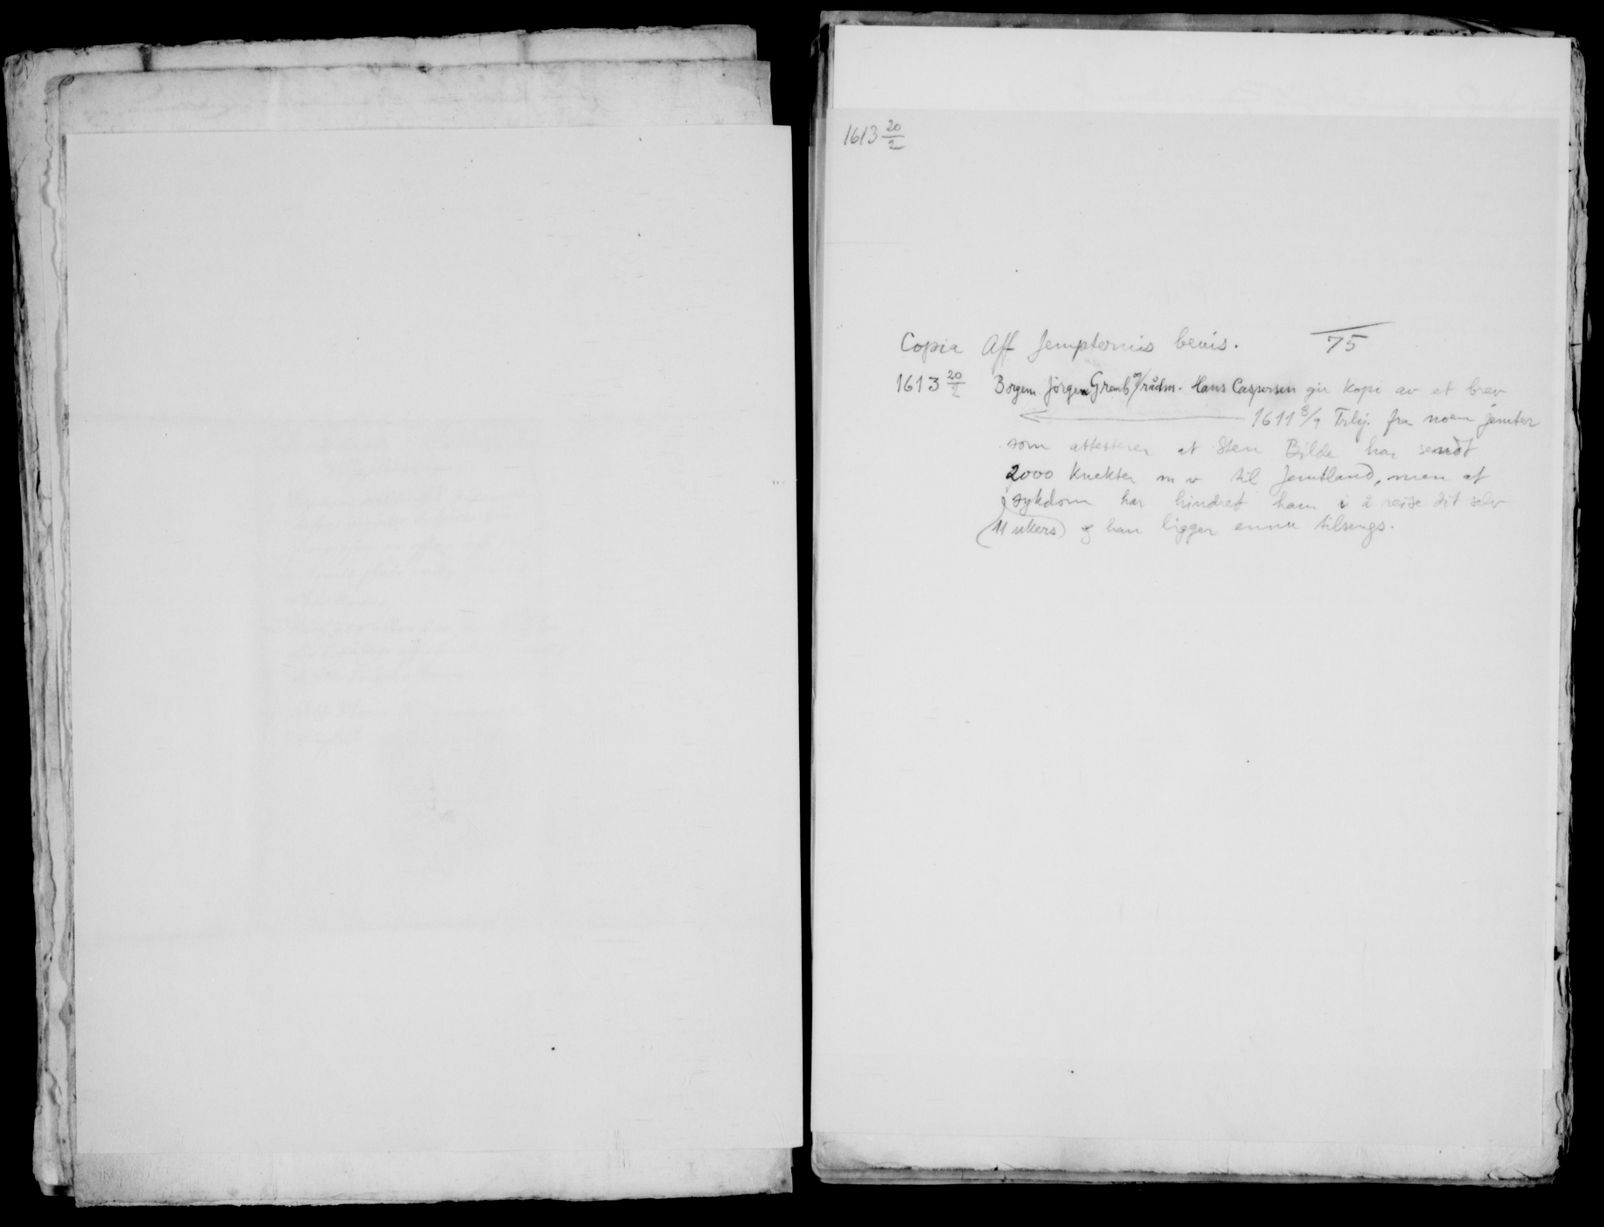 1613 20/2
Copia Aff Jempternis beuis. 75
1613 20/2 Borgem. Jörgen og rådm. Hans Caspersen gir kopi av et brev
1611 8/9 fra noen jemter
som attesterer at Sten Bilde har sendt
2000 knekter m v til Jemtland, men at
sykdom har hindret ham i å reise dit selv
(11 ukers) og han ligger ennu tilsengs.